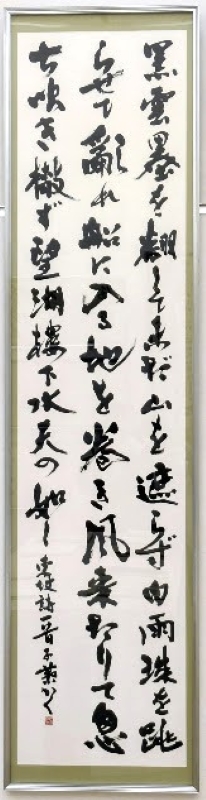 黒雲墨を翻して未だ山を遮らず白雨珠を跳
らせて亂れ船に入る地を巻き風来たりて忽
ち吹き散ず望湖樓下水天の如し 東坡詩